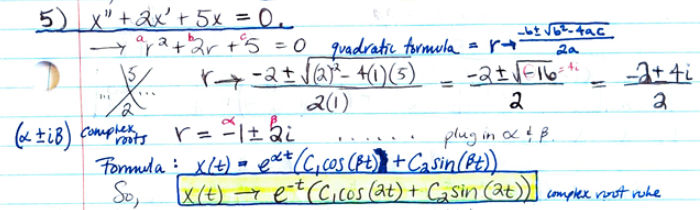 5) x'' + 2x' + 5x = 0.
→ ᵃr² + ᵇ2r + ᶜ5 = 0 quadratic formula = r → -b ± √b² - 4ac / 2a
5 r → -2 ± √(2)² - 4(1)(5) / 2(1) = -2 ± √-16 = 4i / 2 = -2 ± 4i / 2
... ...
2
(α ± iβ) complex roots r = -1 ± 2i α β ...... plug in α & β.
Formula : x(t) = e^αt (C₁cos(βt) + C₂sin(βt))
So, x(t) → e^-t (C₁cos(2t) + C₂sin(2t)) complex root rule